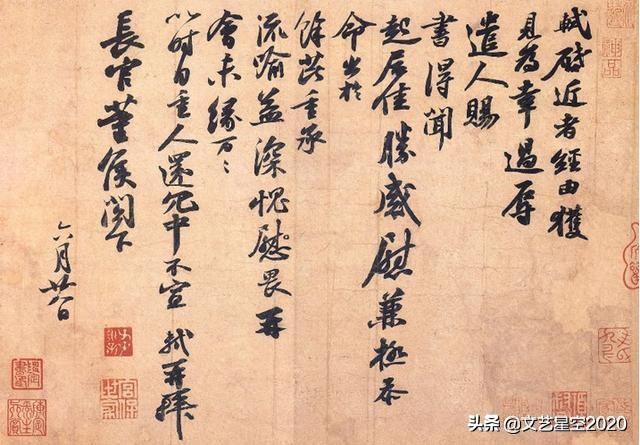 軾啓近者經由獲
見為幸過辱
遣人賜
書得聞
起居佳勝感慰兼極忝
命出於
餘芘重承
流喻益深愧慰畏再
會未緣万〻
以時自重人還冗中不宣 軾再拜
長官董侯閣下
六月廿八日
头条 @文艺星空2020